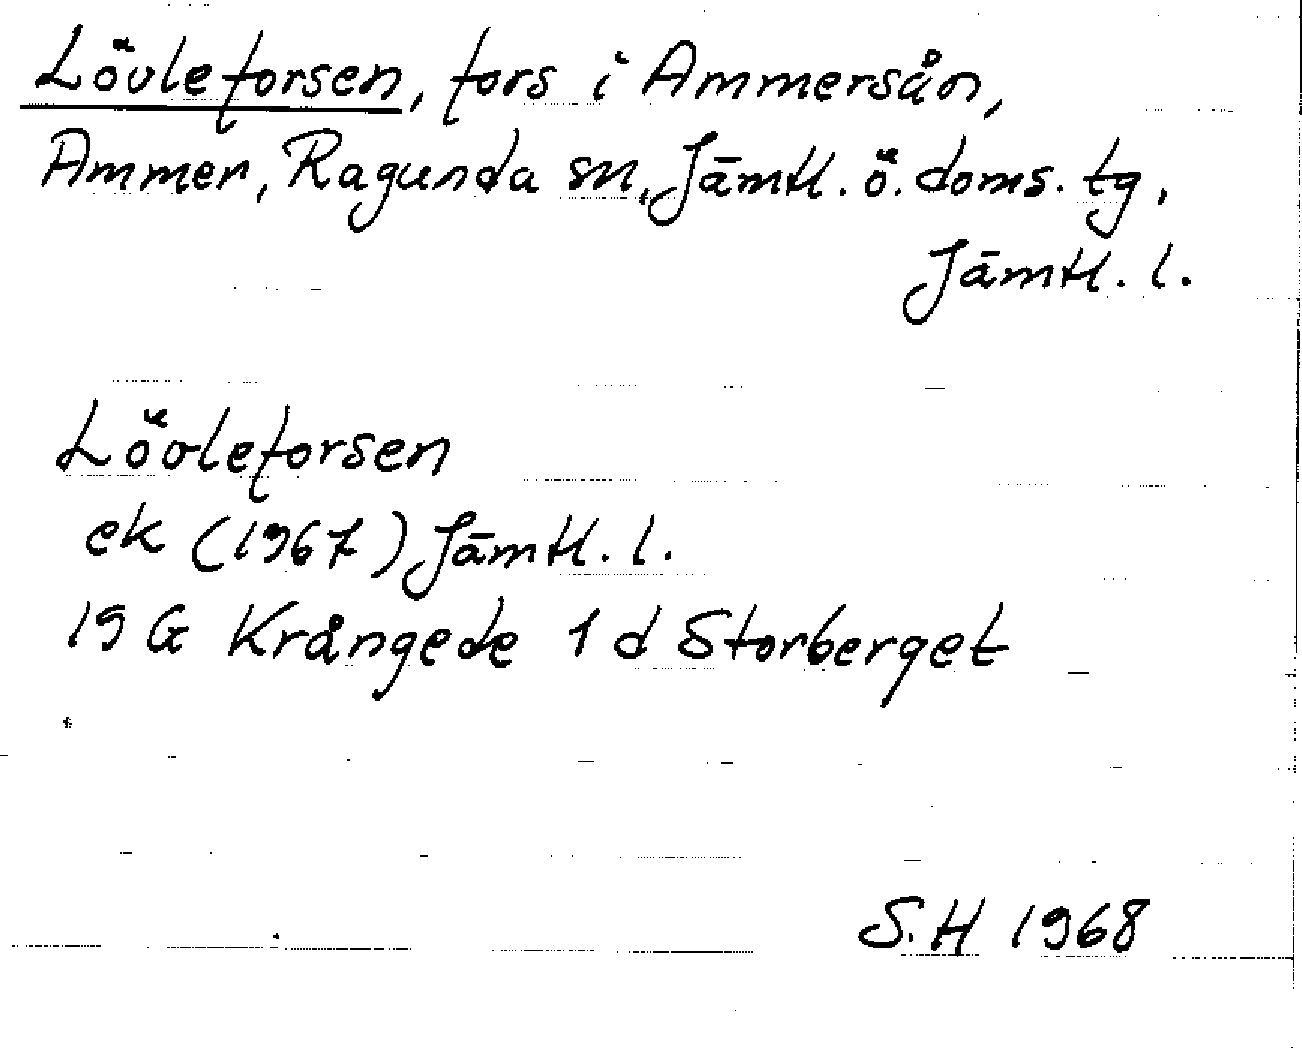 Lövleforsen, fors i Ammersån,
Ammer, Ragunda sn, Jämtl. ö. doms. tg,
Jämtl. l.
Lövleforsen
ek (1967) Jämtl. l.
19 G Krångede 1 d Storberget
S.H 1968